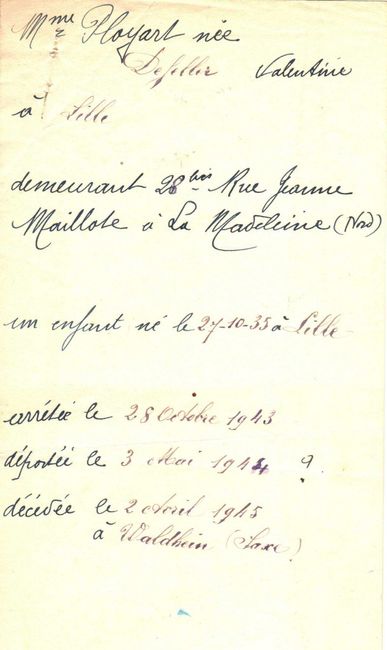 Mme Ployart née
Defellier Valentine
à Lille
demeurant 28 bis Rue Jeanne
Maillote à La Madeleine (Nord)
un enfant né le 27-10-35 à Lille
arrêtée le 28 Octobre 1943
déportée le 3 Mai 1944 ?
décédée le 2 Avril 1945
à Waldhein (Saxe)